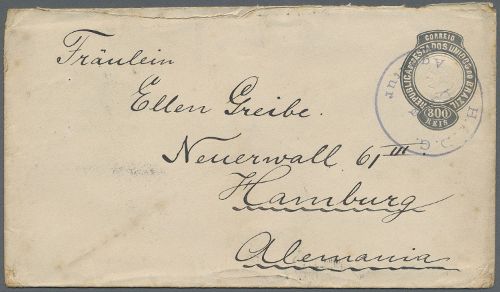 CORREIO
REPUBLICA DOS ESTADOS UNIDOS DO BRAZIL
300
REIS
H. S. D. G.
Fräulein
Ellen Greibe.
Neuerwall 61 III.
Hamburg
Alemania